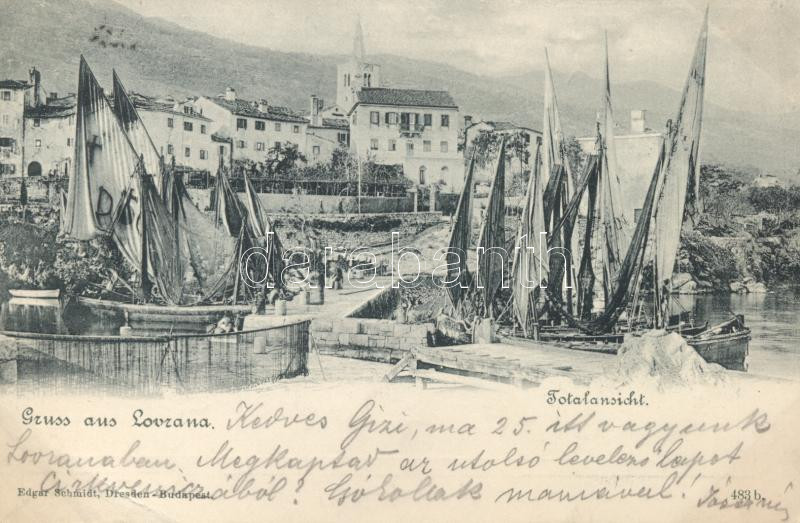 darabanth
Totalansicht.
Gruss aus Lovrana.
Kedves Gizi, ma 25. itt vagyunk
Lovranaban. Megkaptad az utolsó levelező lapot
Cirkvenicából? Csókollak mamával!
Edgar Schmidt, Dresden-Budapest.
483 b.